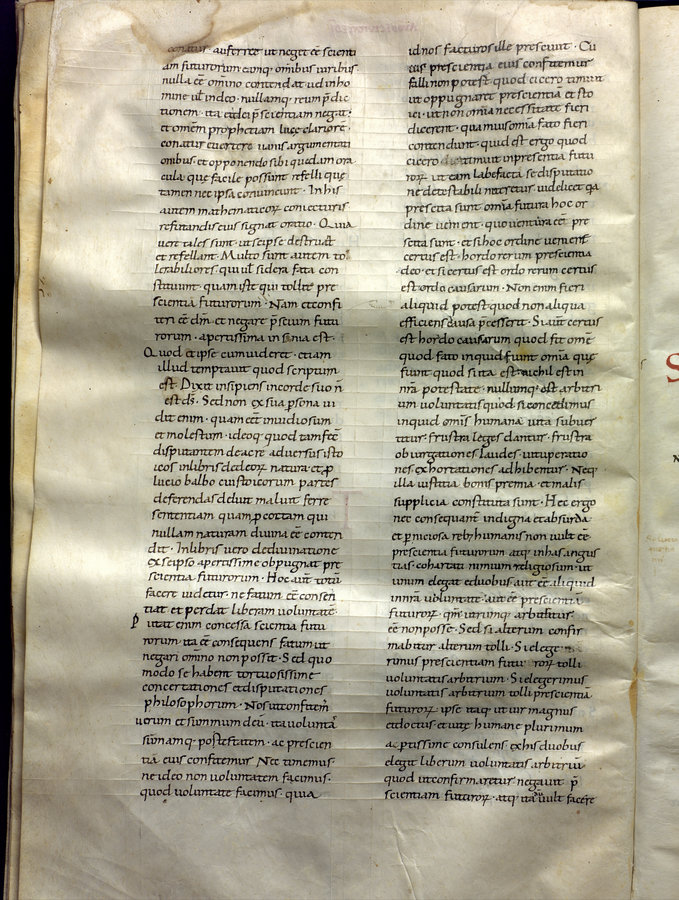 conatur. auferre ut neget ēē scienti
am futurorum eamq; omībus uiribus
nulla ēē omīno contendat ud inho
mine ul̄ indeo. nullamq; reum p̄dic
tionem. ita &dei p̄scientiam negat.
et omēm prophetiam luce clariorē.
conatur euertere uanis argumentati
onibus. et opponendo sibi quedam ora
cula que facile possunt refelli que
tamen nec ipsa conuincunt. In his
autem mathematicorꝝ coniecturis
refutandis eius signat oratio. Quia
uere tales sunt ut seipse destruāt
et refellant. Multo sunt autem to
lerabiliores qui ul̄ sidera fata con
stituunt. quam iste qui tollit pre
scientiā futurorum. Nam et confi
teri ēē dm̄. et negare p̄scium futu
rorum. apertissima insania est.
Quod et ipse cum uideret. etiam
illud temptauit quod scriptum
est. Dixit insipiens incorde suo n̄
est d̄s. Sed non ex sua p̄sona ui
dit enim. quam ēēt inuidiosum
et molestum. ideoq; quod tam fēc
disputantem deacre aduersus isto
icos inlibris dedeorꝝ natura et ꝓ
lucio balbo cui stoicorum partes
defendas dedit maluit ferre
sententiam quam ꝓ cottam qui
nullam naturam diuina ēē conten
dit. Inlibris uero dediuinatione
ex seipso apertissime obpugnat pre
scientia futurorum. Hoc aut̄ totū
facere uidetur. ne fatum ēē consen
tiat et perdat liberam uoluntatē.
Putat enim concessa scientia futu
rorum. ita ēē consequens fatum ut
negari omino non possit. Sed quo
modo se habent tortuosissime
concertationes et disputationes
philosophorum. Nos ut confitem̄
uerum et sūmmum deū. ita uoluntā
sūmamq; potestatem. ac prescien
tiā eius confitemus. Nec timemus.
ne ideo non uoluntatem facimus.
quod uoluntate facimus. quia
id nos facturos ille presciuit. Cu
ius prescientia eius confitemur
falli non potest quod cicero timuit
ut oppugnaret prescientiā et sto
ici. ut non omīa necessitate fieri
dicerent. quamuis omīa fato fieri
contendunt. quid est ergo quod
cicero timuit inpresentia futu
rorꝝ. ut eam labefactā se disputatio
ne detestabili niteretur. uidelicet qa
prescita sunt omīa futura hoc or
dine uenient. quo uentura ēē pre
scita sunt. et si hoc ordine uenient
certus est. hordo rerum prescientia
deo. et si certus est ordo rerum certus
est ordo causarum. Non enim fieri
aliquid potest quod non aliqua
efficiens causa p̄cesserit. Si aut̄ certus
est hordo causarum quod fit omē
quod fato inquid fiunt omīa quę
fiunt quod si ita est. nichil est in
nrā potestate. nullumq; est arbitri
um uoluntatis. quod si concedimus
inquid omīs humana uita subuer
titur. frustra leges dantur. frustra
obiurgationes laudes. uituperatio
nes. exhortationes adhibentur. Neq;
illa iustitia bonis premia. et malis
supplicia constituta sunt. Hec ergo
nec consequant indigna et absurda
et p̄niciosa reb; humanis non uult ēē
prescientia futurorum. atq; in has angus
tias. cohartat nimium religiosum. ut
unum elegat eduobus. aut ēē aliquid
innrā uoluntate. aut ēē prescientiā
futurorꝝ. qm̄ utrumq; arbitratur
ēē non posse. Sed si alterum confir
mabitur alterum tolli. Si elege
rimus prescientiam futurorꝝ tolli
uoluntatis arbitrium. Si elegerimus
uoluntatis arbitrium tolli prescientiā
futurorꝝ. ipse itaq; ut uir magnus
et doctus. et uitę humanę plurimum
ac ꝑitissime consulens. ex his duobus
elegit liberum uoluntatis arbitriū.
quod ut confirmaretur. negauit p̄
scientiam futurorꝝ. atq; ita uult facere
S